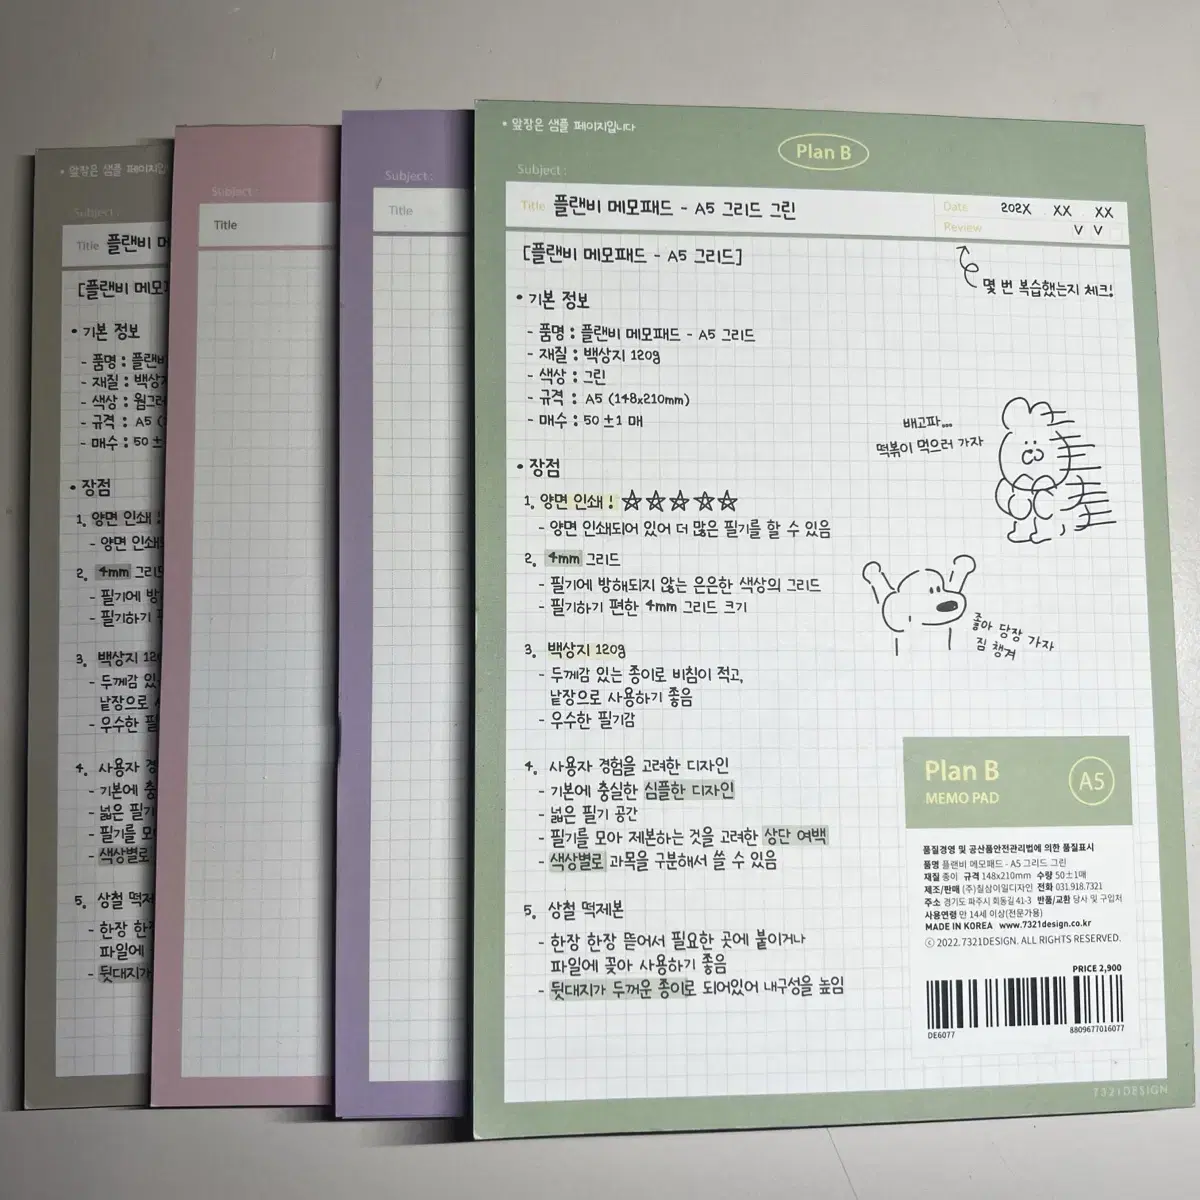 • 앞장은 샘플 페이지입
Subject :
Title 플랜비 메
[플랜비 메모
• 기본 정보
- 품명 : 플랜비
- 재질 : 백상
- 색상 : 웜그
- 규격 : A5 (
- 매수 : 50 ±
• 장점
1. 양면 인쇄 !
- 양면 인쇄
2. 4mm 그리드
- 필기에 방
- 필기하기
3. 백상지 120
- 두께감 있
낱장으로
- 우수한 필
4. 사용자 경
- 기본에 충
- 넓은 필기
- 필기를 모
- 색상별로
5. 상철 떡제
- 한장 한
파일에
- 뒷대지가
Subject :
Title
Subject :
Title
• 앞장은 샘플 페이지입니다
Plan B
Subject :
Title 플랜비 메모패드 - A5 그리드 그린
Date 202X . XX . XX
Review V V
[플랜비 메모패드 - A5 그리드]
몇 번 복습했는지 체크!
• 기본 정보
- 품명 : 플랜비 메모패드 - A5 그리드
- 재질 : 백상지 120g
- 색상 : 그린
- 규격 : A5 (148x210mm)
- 매수 : 50 ±1 매
배고파...
떡볶이 먹으러 가자
• 장점
1. 양면 인쇄 ! ☆☆☆☆☆
- 양면 인쇄되어 있어 더 많은 필기를 할 수 있음
2. 4mm 그리드
- 필기에 방해되지 않는 은은한 색상의 그리드
- 필기하기 편한 4mm 그리드 크기
좋아 당장 가자
짐 챙겨
3. 백상지 120g
- 두께감 있는 종이로 비침이 적고,
낱장으로 사용하기 좋음
- 우수한 필기감
4. 사용자 경험을 고려한 디자인
- 기본에 충실한 심플한 디자인
- 넓은 필기 공간
- 필기를 모아 제본하는 것을 고려한 상단 여백
- 색상별로 과목을 구분해서 쓸 수 있음
5. 상철 떡제본
- 한장 한장 뜯어서 필요한 곳에 붙이거나
파일에 꽂아 사용하기 좋음
- 뒷대지가 두꺼운 종이로 되어있어 내구성을 높임
Plan B
MEMO PAD
A5
품질경영 및 공산품안전관리법에 의한 품질표시
품명 플랜비 메모패드 - A5 그리드 그린
재질 종이 규격 148x210mm 수량 50±1매
제조/판매 (주)칠삼이일디자인 전화 031.918.7321
주소 경기도 파주시 회동길 41-3 반품/교환 당사 및 구입처
사용연령 만 14세 이상(전문가용)
MADE IN KOREA www.7321design.co.kr
ⓒ 2022.7321DESIGN. ALL RIGHTS RESERVED.
PRICE 2,900
DE6077
8809677016077
7321DESIGN